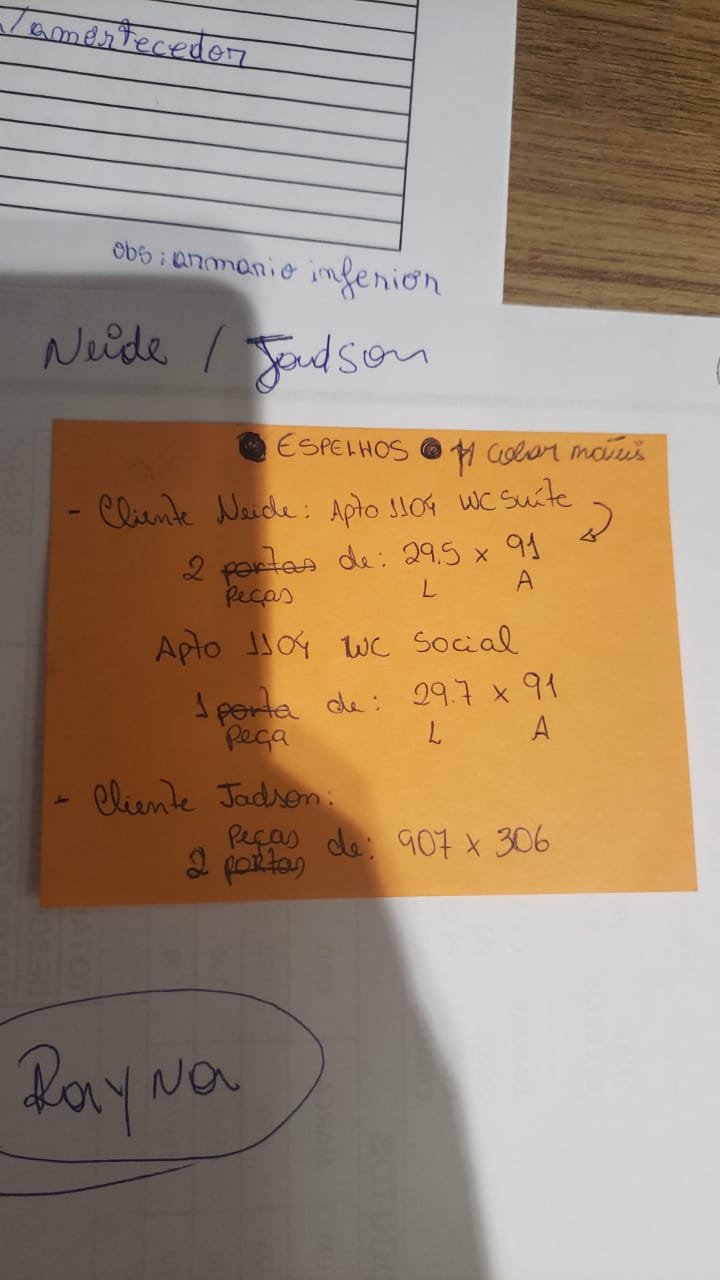 /amortecedor
obs: armario inferior
Neide / Jadson
ESPELHOS p/ colar mauis
- Cliente Neide: Apto 1104 WC Suíte
2 portas de: 29.5 x 91
Peças L A
Apto 1104 WC Social
1 porta de: 29.7 x 91
Peça L A
- Cliente Jadson:
Peças
2 portas de: 907 x 306
Rayna